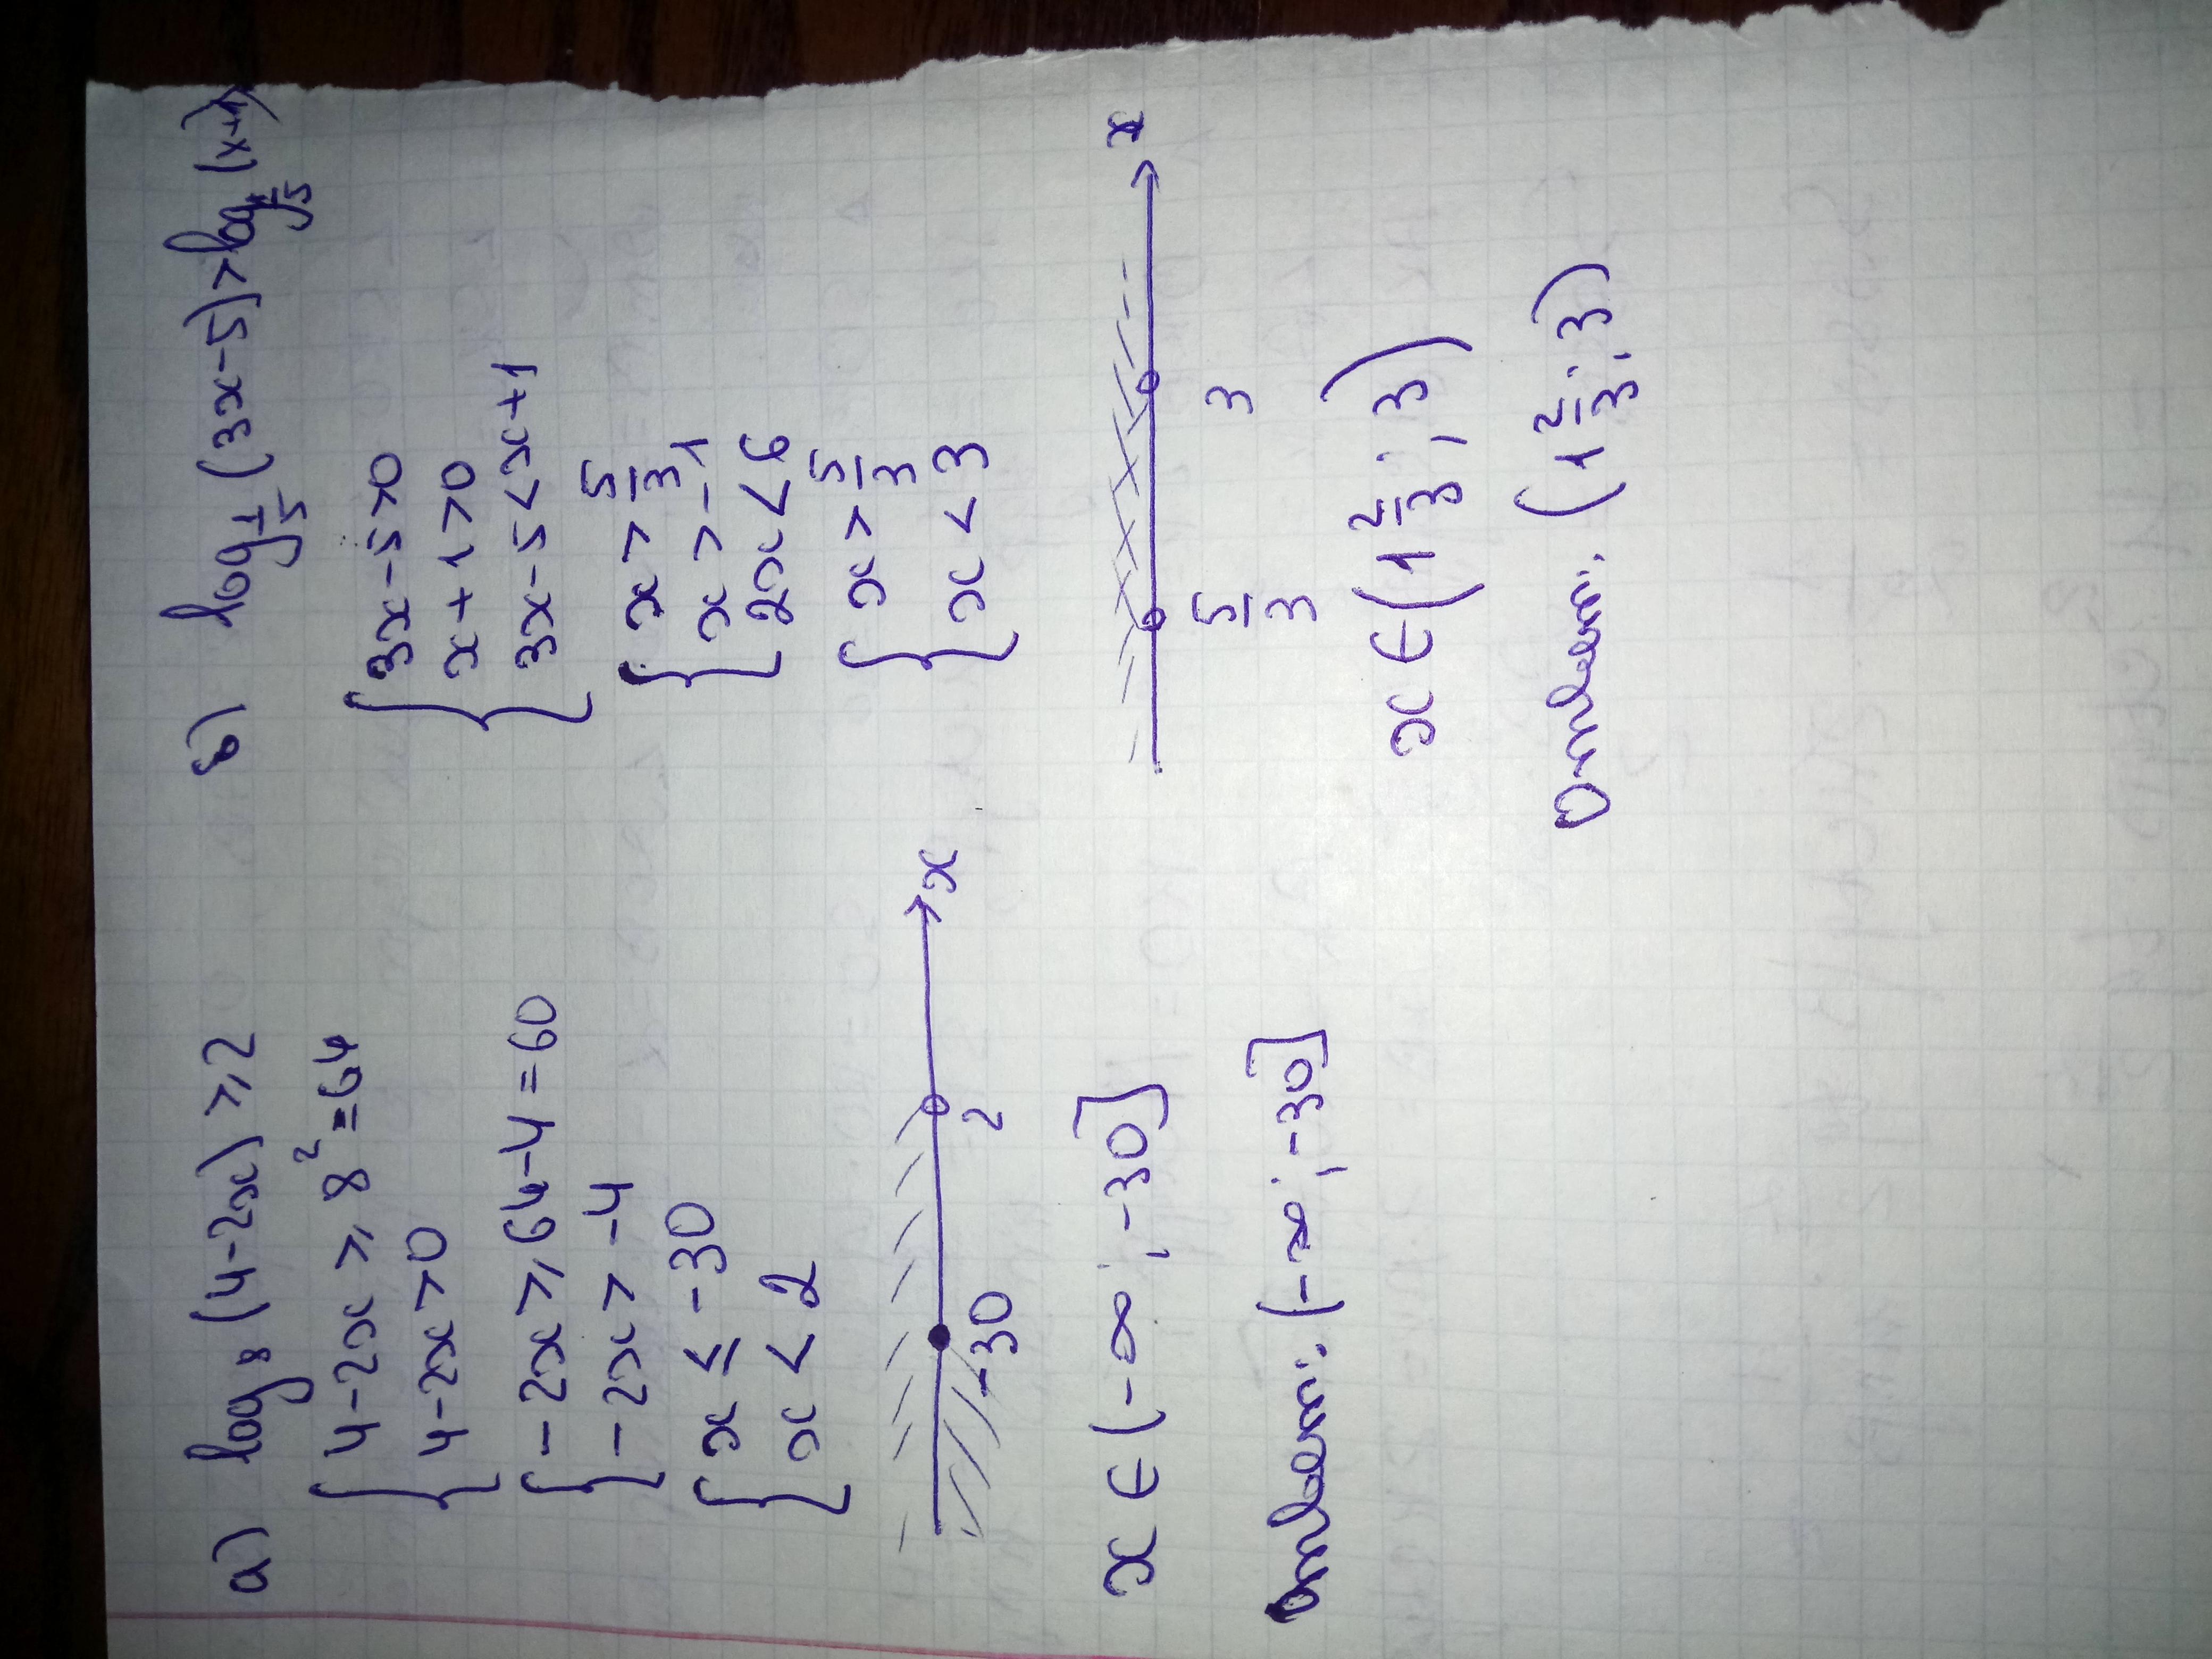 а) log₈(4-2x) ⩾ 2
{ 4-2x ⩾ 8² = 64
4-2x > 0
{ -2x ⩾ 64-4 = 60
-2x > -4
{ x ≤ -30
x < 2
-30 2 x
x ∈ (-∞; -30]
Ответ: (-∞; -30]
в) log_{1/5}(3x-5) > log_{1/5}(x+1)
{ 3x-5 > 0
x+1 > 0
3x-5 < x+1
{ x > 5/3
x > -1
2x < 6
{ x > 5/3
x < 3
5/3 3 x
x ∈ (1 2/3; 3)
Ответ: (1 2/3; 3)